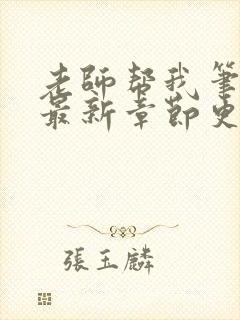 老師幫我筆
最新章節史
張玉麟